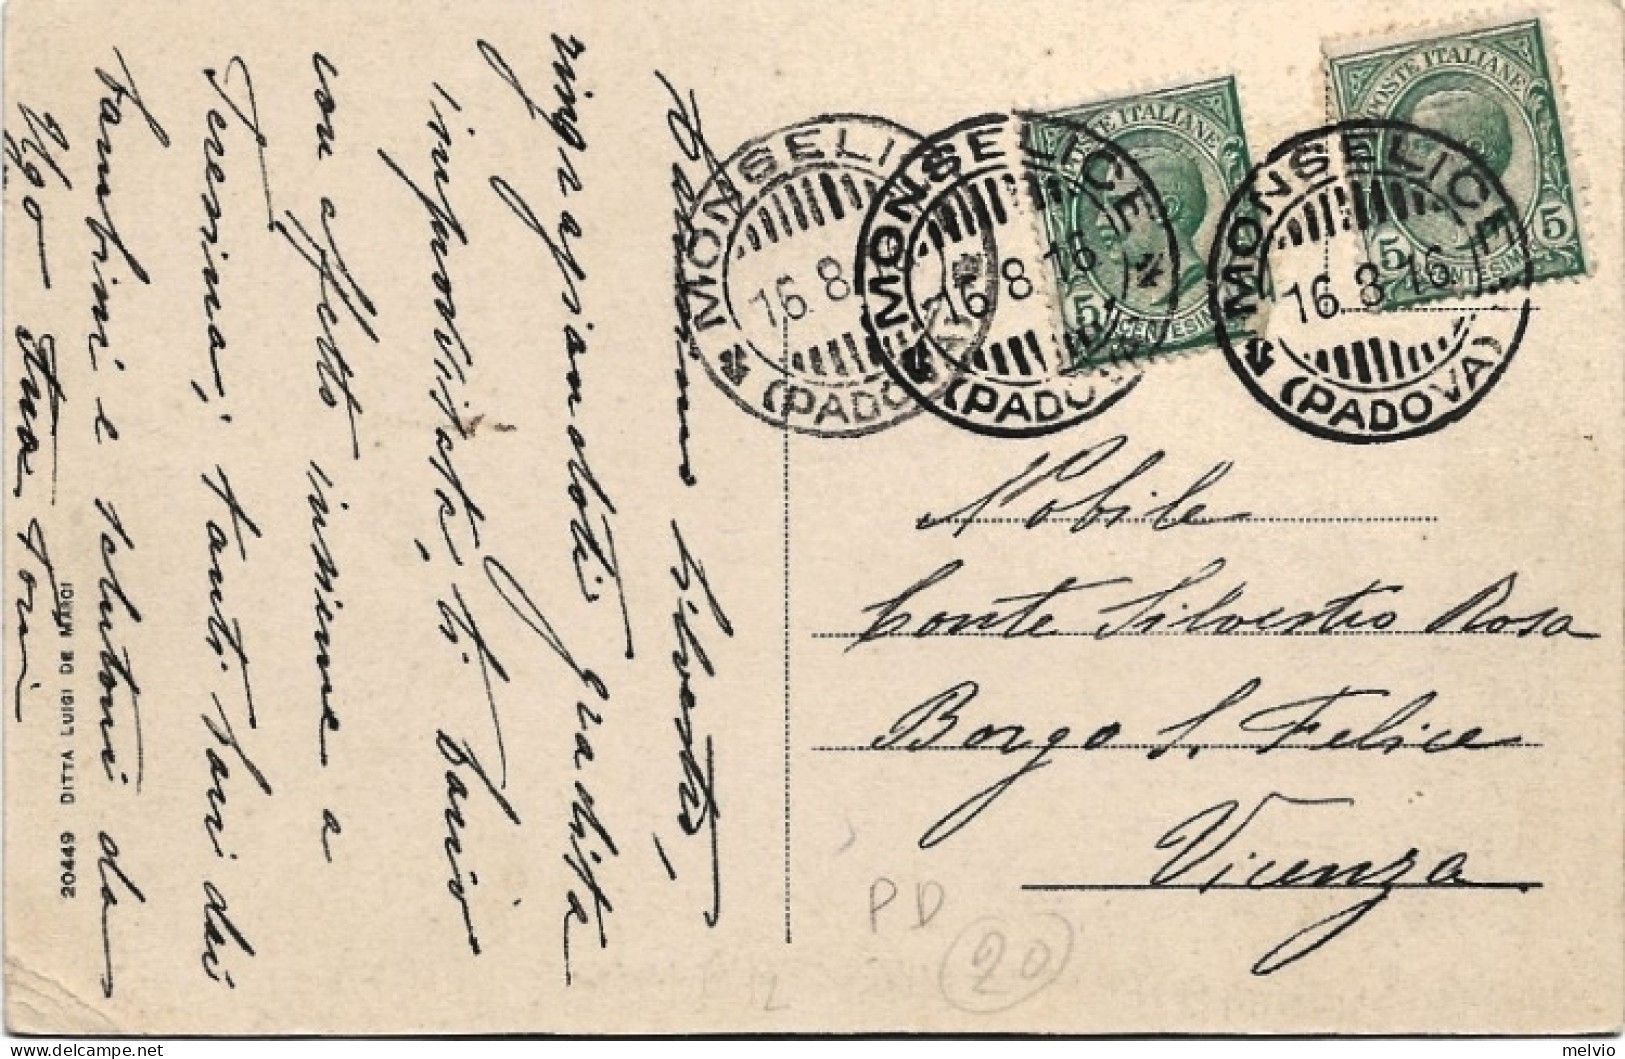 POSTE ITALIANE
5 5
CENTESIMI
POSTE ITALIANE
5
CENTESIMI
MONSELICE
16 8
(PADOVA)
MONSELICE
16 8 16
(PADOVA)
MONSELICE
16 8 16
(PADOVA)
Silvestro,
ringraziandoti gradita
improvvisata, ti bacio
con affetto insieme a
Teresina, tanti baci dai
bambini e saluti da
Ugo tuo
20449 DITTA LUIGI DE MARCI
Nobile
Conte Silvestro Rosa
Borgo S. Felice
Vicenza
PD
20
melvio